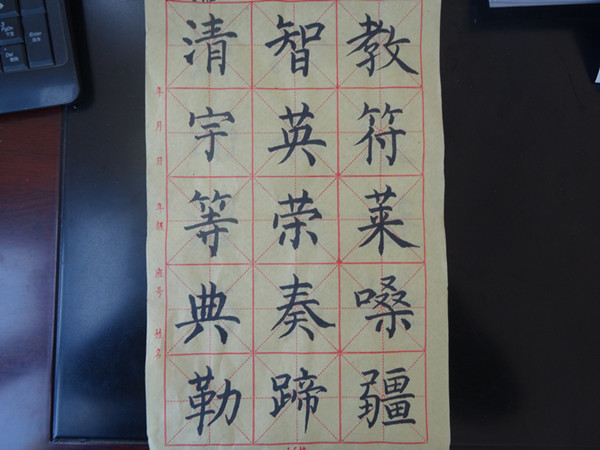 教符莱嗓疆
智英荣奏蹄
清宇等典勒
年月日
年级
姓名